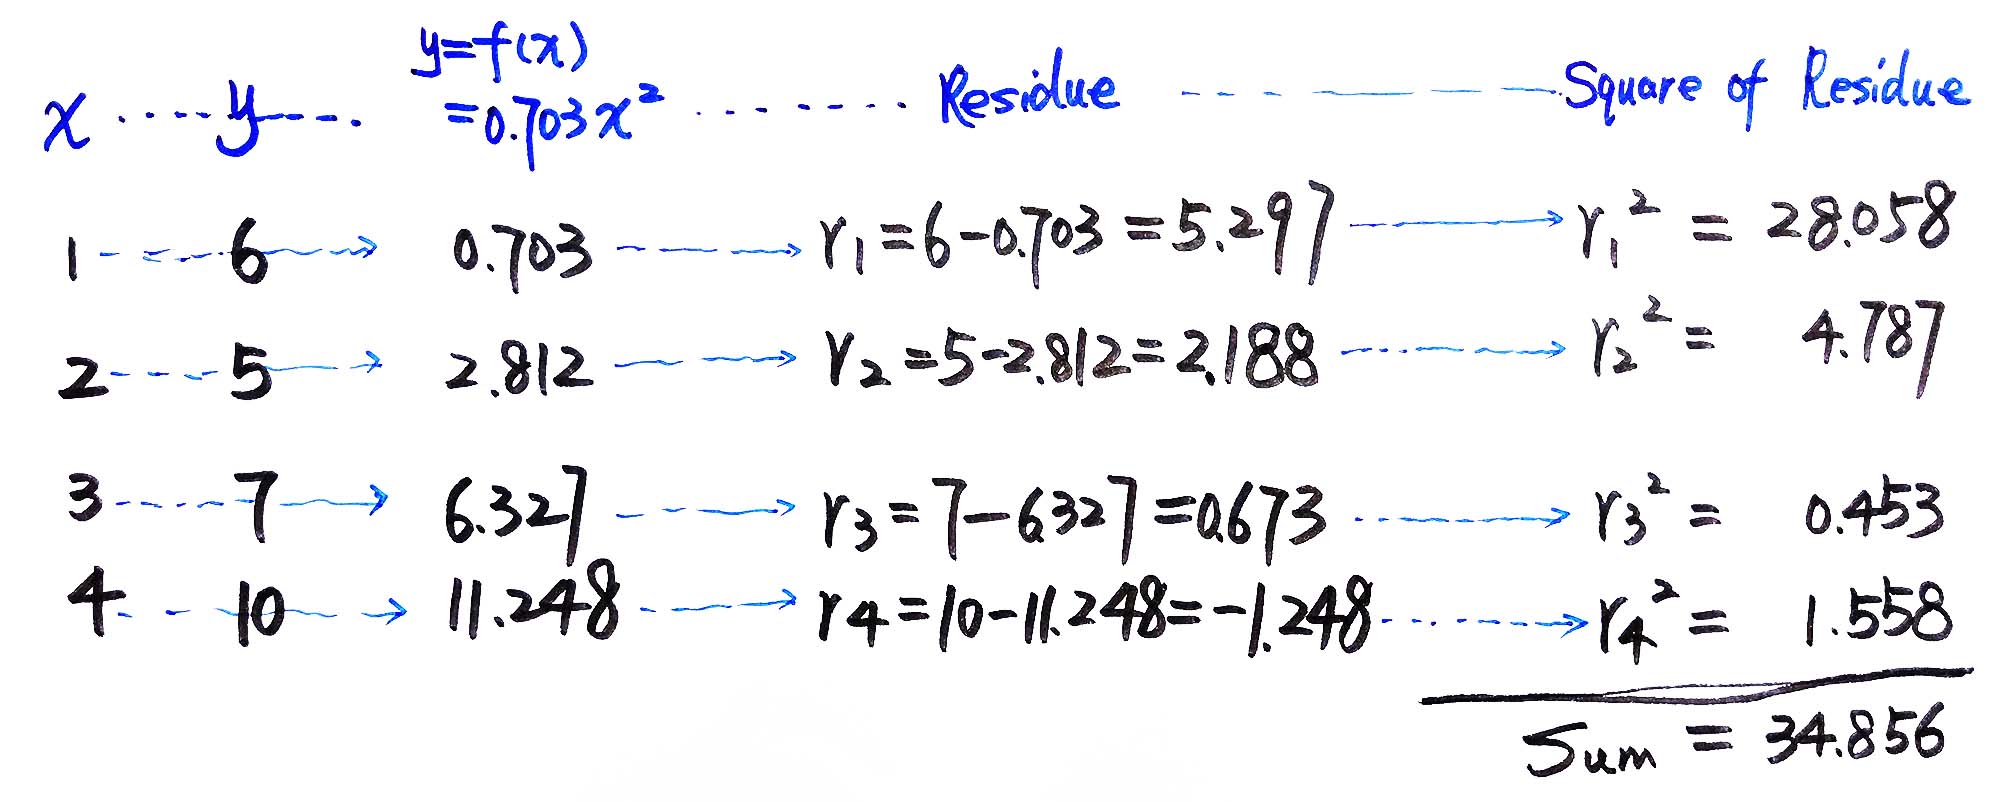 y=f(x)
x ..... y ..... =0.703x² ........ Residue ------- Square of Residue
1 6 0.703 r₁=6-0.703=5.297 r₁² = 28.058
2 5 2.812 r₂=5-2.812=2.188 r₂² = 4.787
3 7 6.327 r₃=7-6.327=0.673 r₃² = 0.453
4 10 11.248 r₄=10-11.248=-1.248 r₄² = 1.558
Sum = 34.856